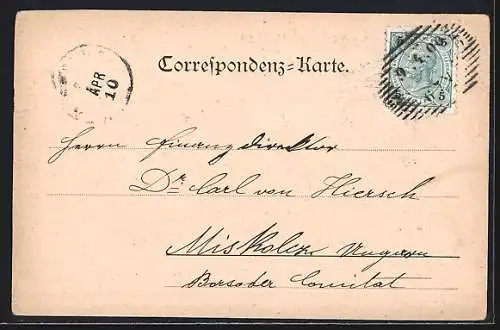 Correspondenz-Karte.
APR
10
Herrn Finanzdirektor
Dr. Carl von Hiersch
Miskolcz Ungarn
Borsoder Comitat